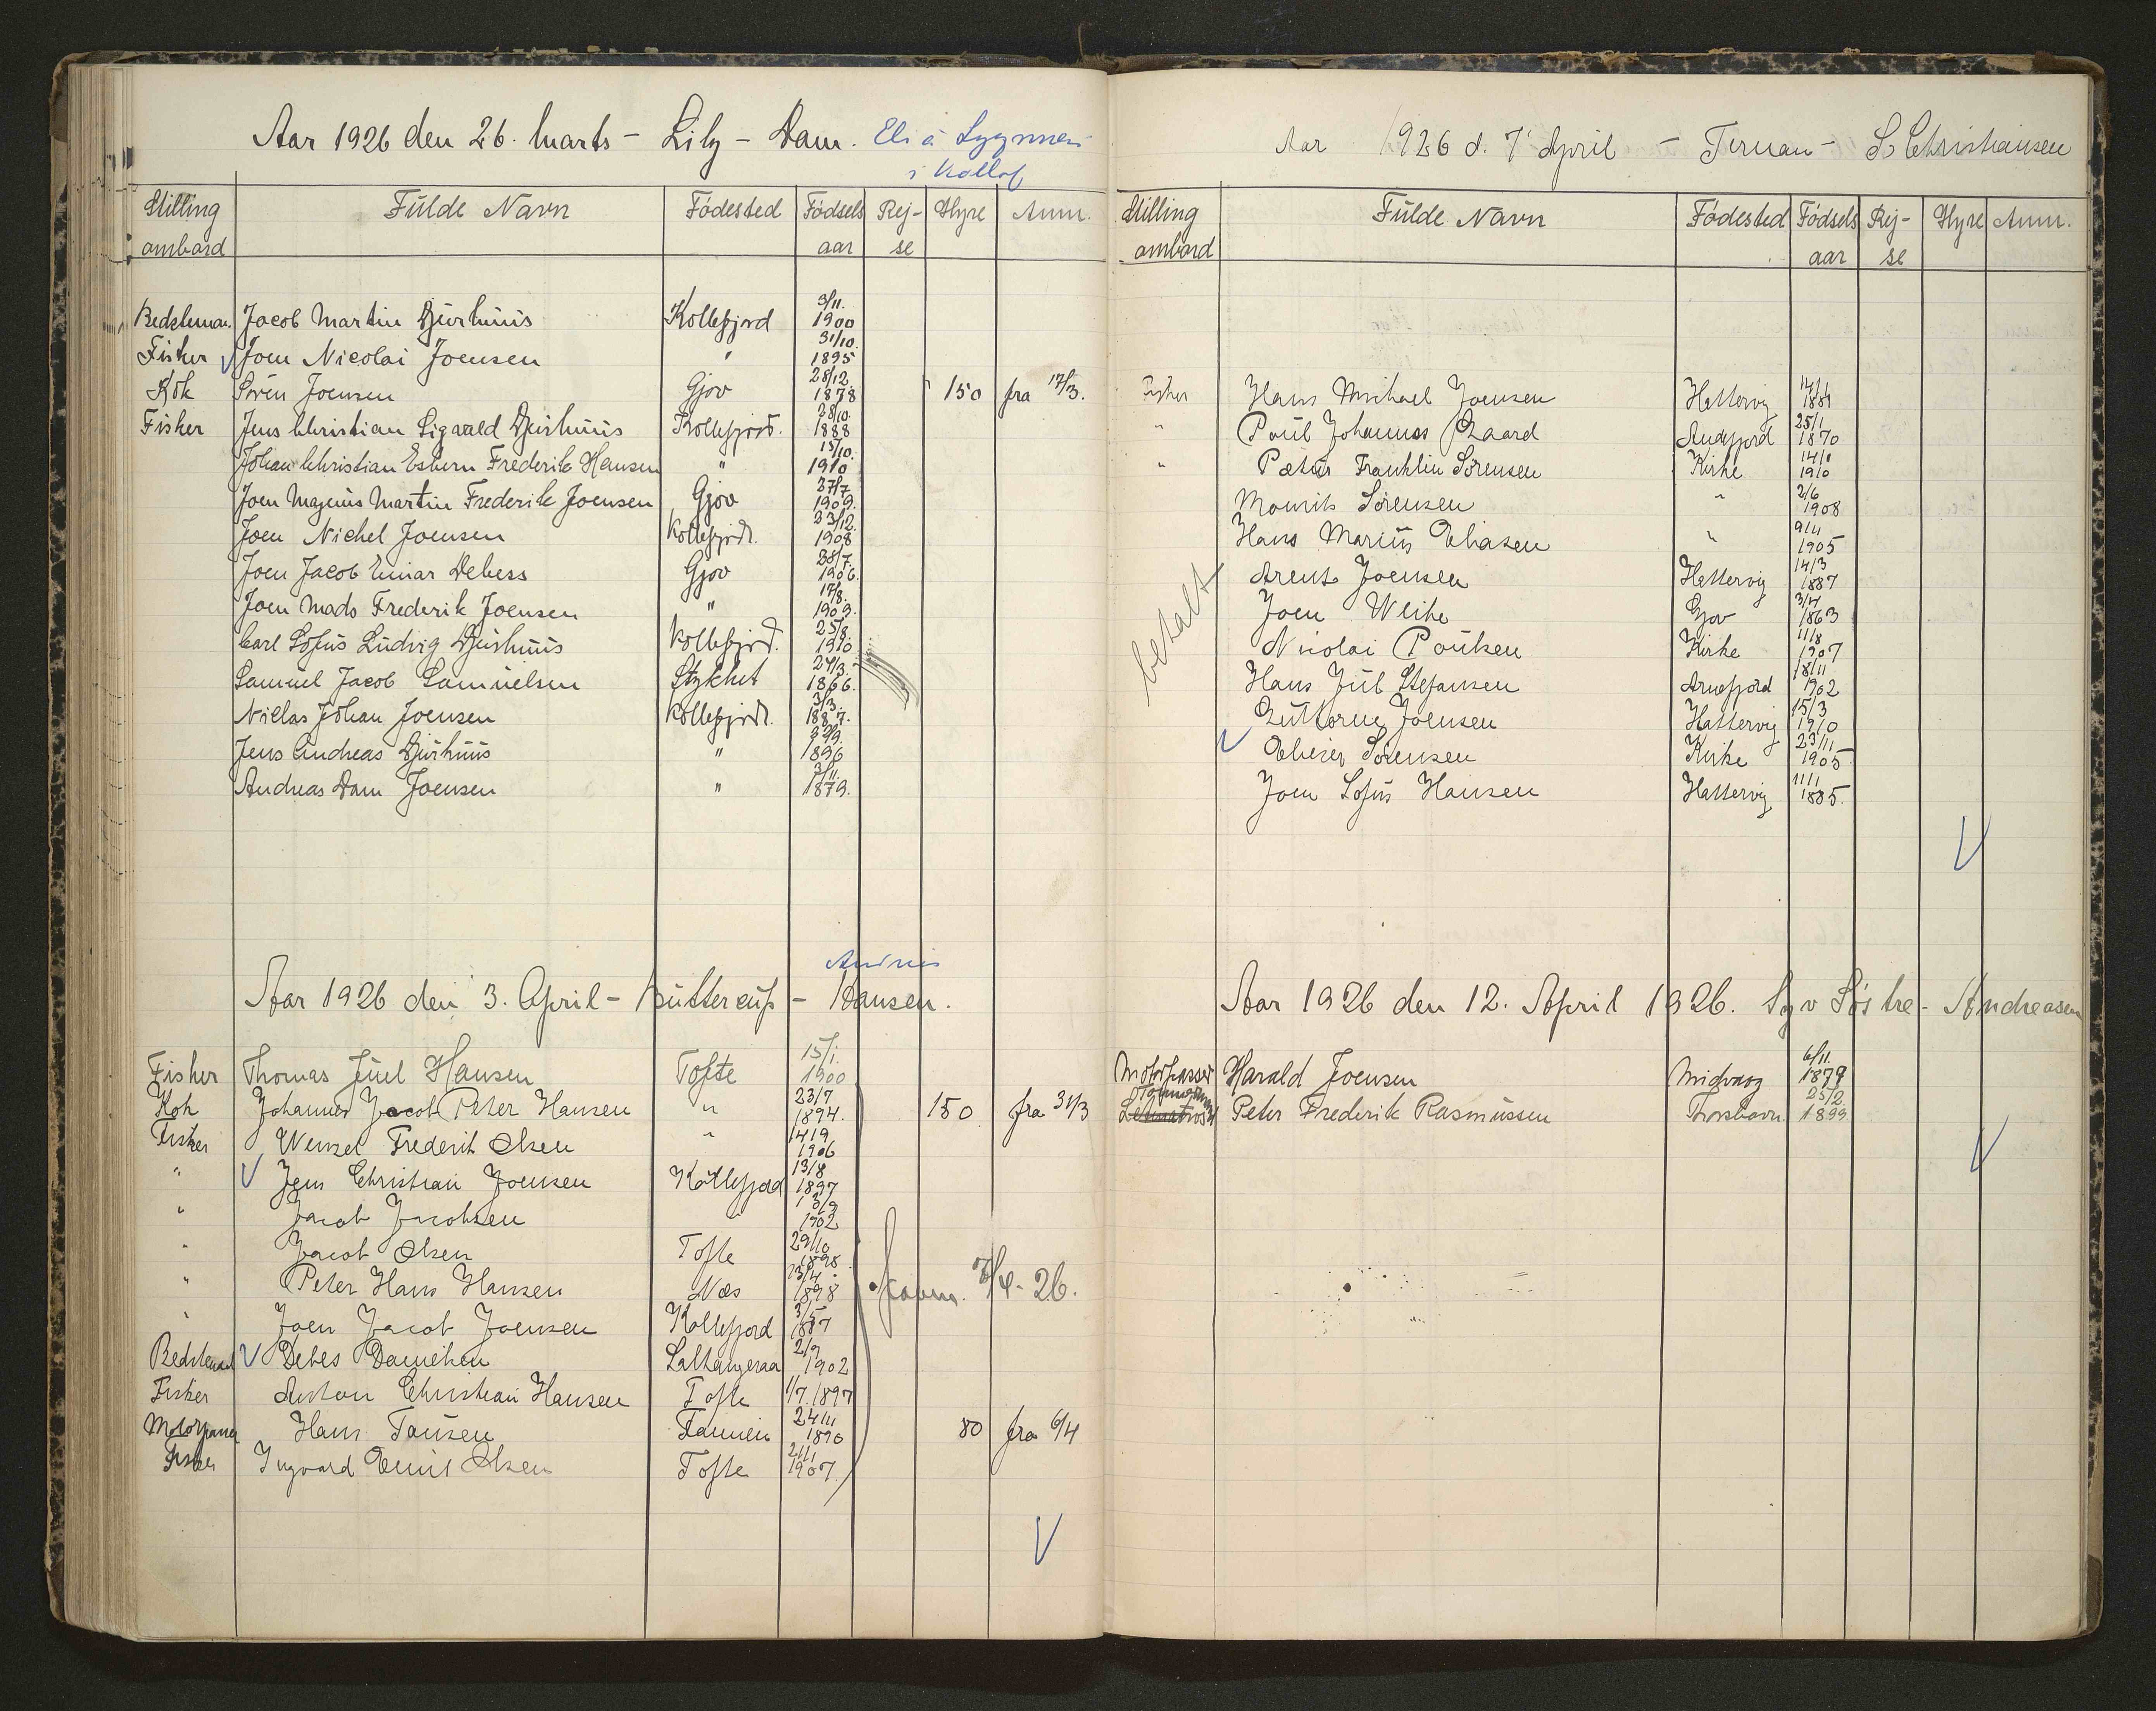 Aar 1926 den 26. Marts – Lily – Dam. Eli á
i Kollaf
Stilling Fulde Navn Födested Födsels Rej- Hyre Anm.
ombord aar se
3/11.
Bedsteman. Jacob Martin Djurhuus Kollefjord 1900
31/10.
Fisker Joen Nicolai Joensen " 1895
28/12.
Kok Sören Joensen Gjov 1878 150 fra 17/3.
28/10.
Fisker Jens Christian Sigvald Djurhuus Kollefjord. 1888
15/10.
Johan Christian Esbern Frederik Hansen " 1910
27/7.
Joen Magnus Martin Frederik Joensen Gjov 1909.
23/12.
Joen Michel Joensen Kollefjord. 1908
28/7.
Joen Jacob Einar Debess Gjov 1906.
17/8.
Joen Mads Frederik Joensen " 1909.
25/8.
Carl Sofus Ludvig Djurhuus Kollefjord. 1910.
24/3.
Samuel Jacob Samuelsen Stykket 1866.
3/3.
Niclas Johan Joensen Kollefjord. 1887.
Jens Andreas Djurhuus " 1896
3/11.
Andreas Dam Joensen " 1879.
Andrias
Aar 1926 den 3. April – Buttercup – Hansen.
15/1.
Fisher Thomas Juel Hansen Tofte 1900
23/7
Kok Johannes Jacob Peter Hansen " 1894. 150 fra 31/3
14/9
Fisker Wenzel Frederik Olsen " 1906
13/8
" Jens Christian Joensen Kollefjord 1897
" Jacob Jacobsen 1902
29/10
" Jacob Olsen Tofte 1898
23/4.
" Peter Hans Hansen Næs 1898 7/4-26.
3/5
" Joen Jacob Joensen Kollefjord 1887
2/9
Bedstemand Debes Danielsen Saltangeraa 1902
Fisker Anton Christian Hansen Tofte 1/7.1897
24/11
Motorpasser Hans Tausen Famien 1890 80 fra 6/4
21/1
Fisker Ingvard Emil Olsen Tofte 1907.
Aar 1926 d. 7 April – Ternan – S. Christiansen
Stilling Fulde Navn Födested Födsels Rej- Hyre Anm.
ombord aar se
14/1
Fisher Hans Michael Joensen Hattervig 1881
25/1
" Poul Johannes Gaard Andefjord 1870
14/10
" Petur Franklin Sörensen Kirke 1910
2/6
Mourits Sörensen " 1908
9/11
Hans Marius Eliasen " 1905
14/3
Arent Joensen Hattervig 1887
betalt
3/4
Joen Weihe Gjov 1863
11/8
Nicolai Poulsen Kirke 1907
18/11
Hans Jul Stefansen Arnefjord 1902
15/3
Guttorm Joensen Hattervig 1910
23/11
Elieser Sörensen Kirke 1905
11/1
Joen Sofus Hansen Hattervig 1885.
Aar 1926 den 12. April 1926. Syv Söstre – Andreasen
6/11.
Motorpasser Harald Joensen Midvaag 1879
25/2.
Peter Frederik Rasmussen Thorshavn. 1899